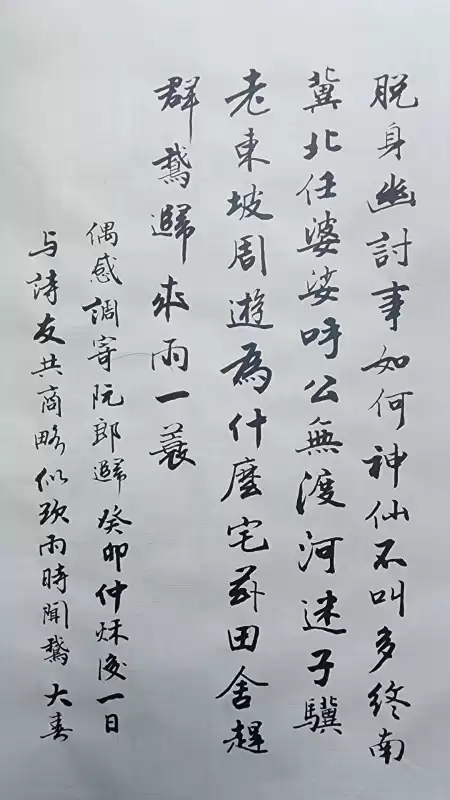 脱身幽討事如何神仙不叫多終南
冀北任婆娑呼公無渡河迷子驥
老東坡周遊為什麼宅前田舍趕
群鵞歸來雨一蓑
偶感調寄阮郎歸癸卯仲秌後一日
与詩友共商略似欲雨時聞鵞大春